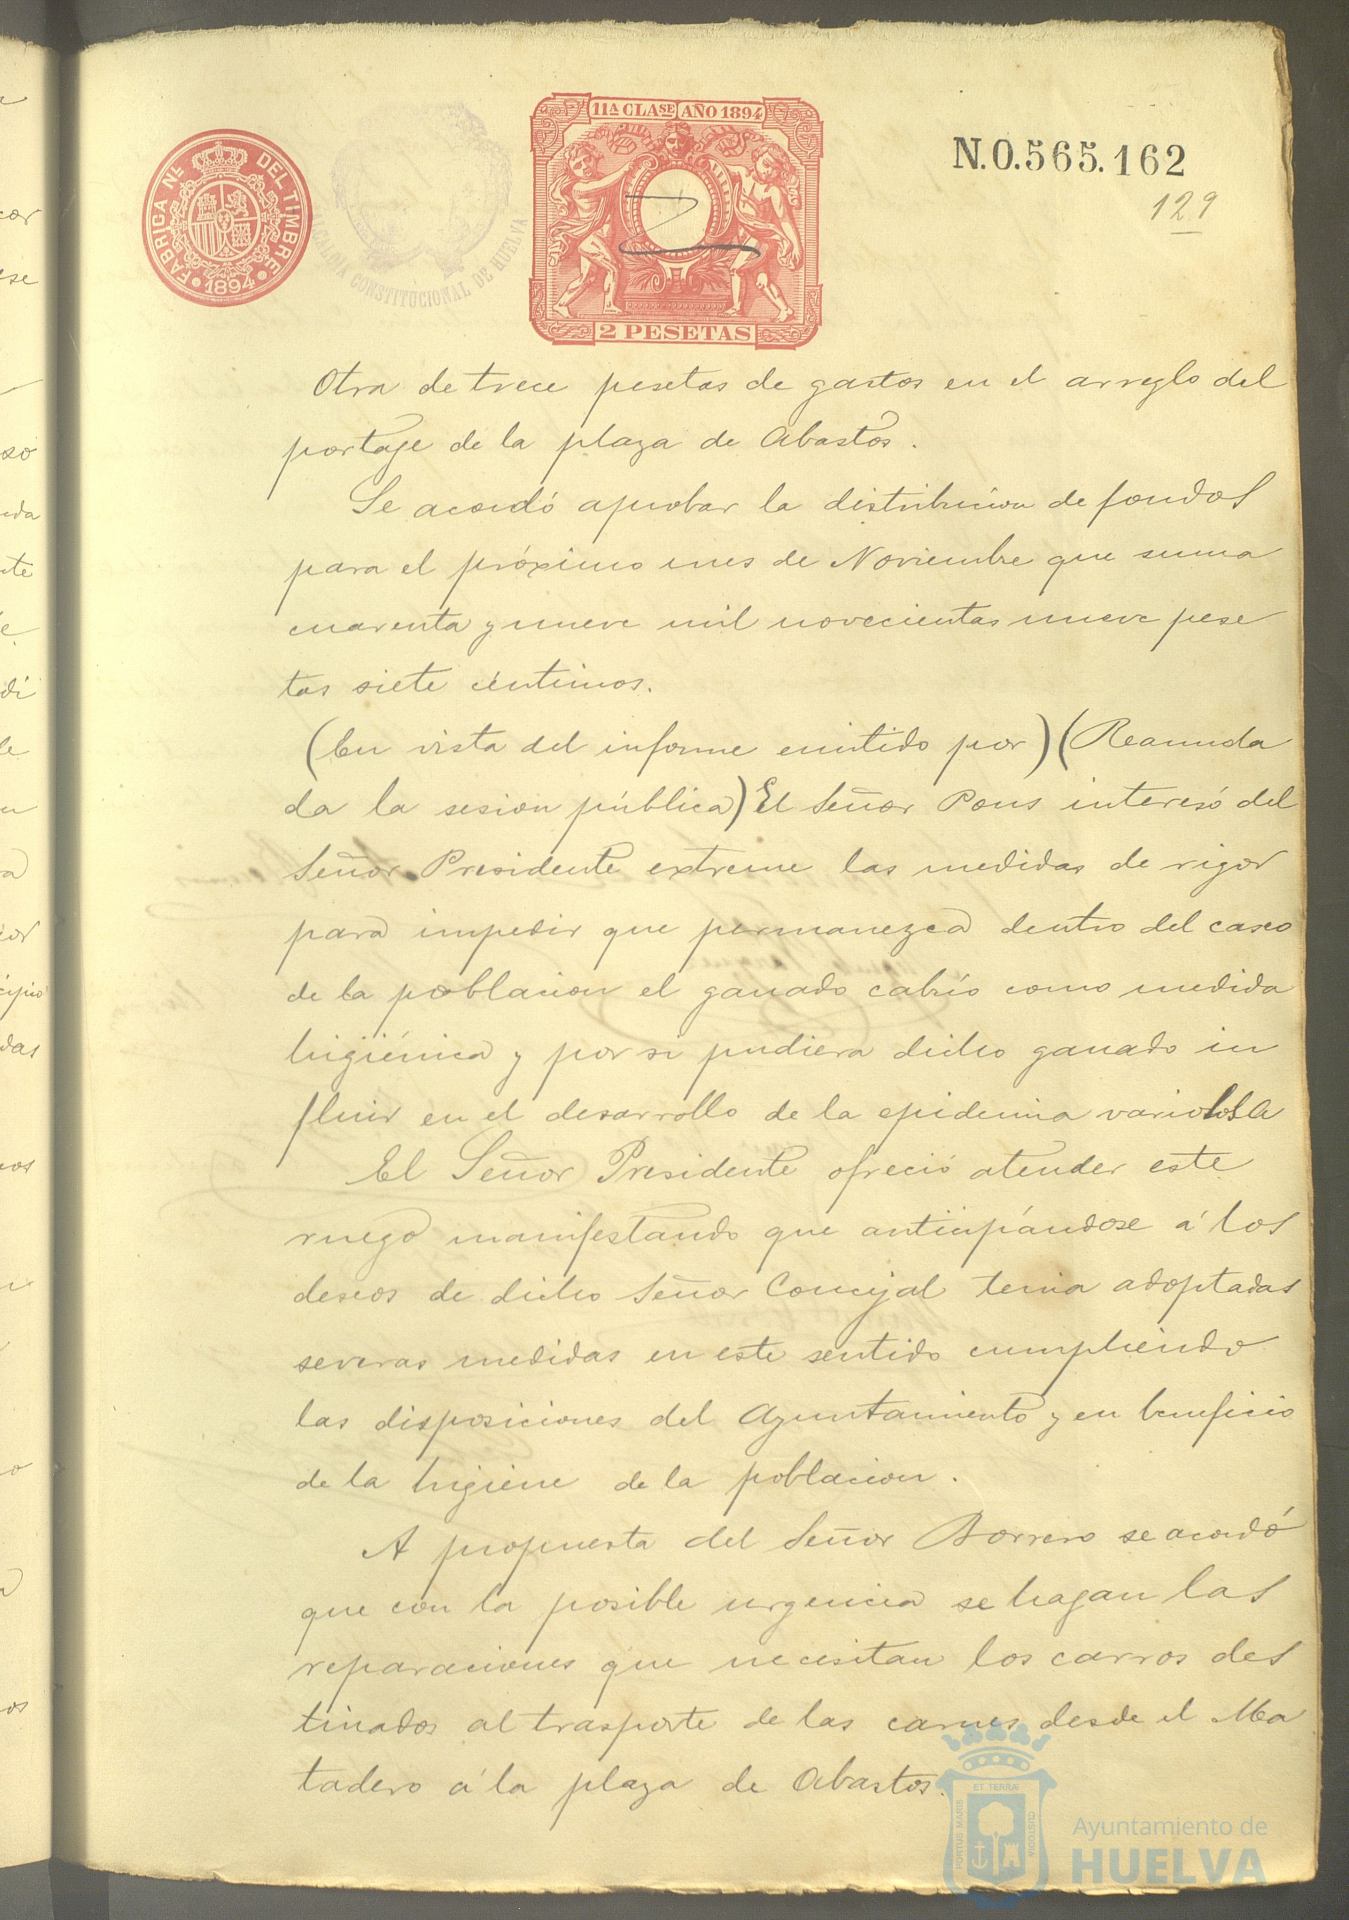 FABRICA NL. DEL TIMBRE
1894
ALCALDIA CONSTITUCIONAL DE HUELVA
11A CLASE AÑO 1894
2 PESETAS
N.0.565.162
129
Otra de trece pesetas de gastos en el arreglo del
portage de la plaza de Abastos.
Se acordó aprobar la distribucion de fondos
para el próximo mes de Noviembre que suma
cuarenta y nueve mil novecientas nueve pese
tas siete céntimos.
(En vista del informe emitido por) (Reanuda
da la sesion pública) El Señor Pons interesó del
Señor Presidente extreme las medidas de rigor
para impedir que permanezca dentro del casco
de la poblacion el ganado cabrío como medida
higiénica y por si pudiera dicho ganado in
fluir en el desarrollo de la epidemia variolosa
El Señor Presidente ofreció atender este
ruego manifestando que anticipándose á los
deseos de dicho Señor Concejal tenia adoptadas
severas medidas en este sentido cumpliendo
las disposiciones del Ayuntamiento y en beneficio
de la higiene de la poblacion.
A propuesta del Señor Borrero se acordó
que con la posible urgencia se hagan las
reparaciones que necesitan los carros des
tinados al trasporte de las carnes desde el Ma
tadero á la plaza de Abastos.
PORTUS MARIS ET TERRAE CUSTODIA
Ayuntamiento de
HUELVA